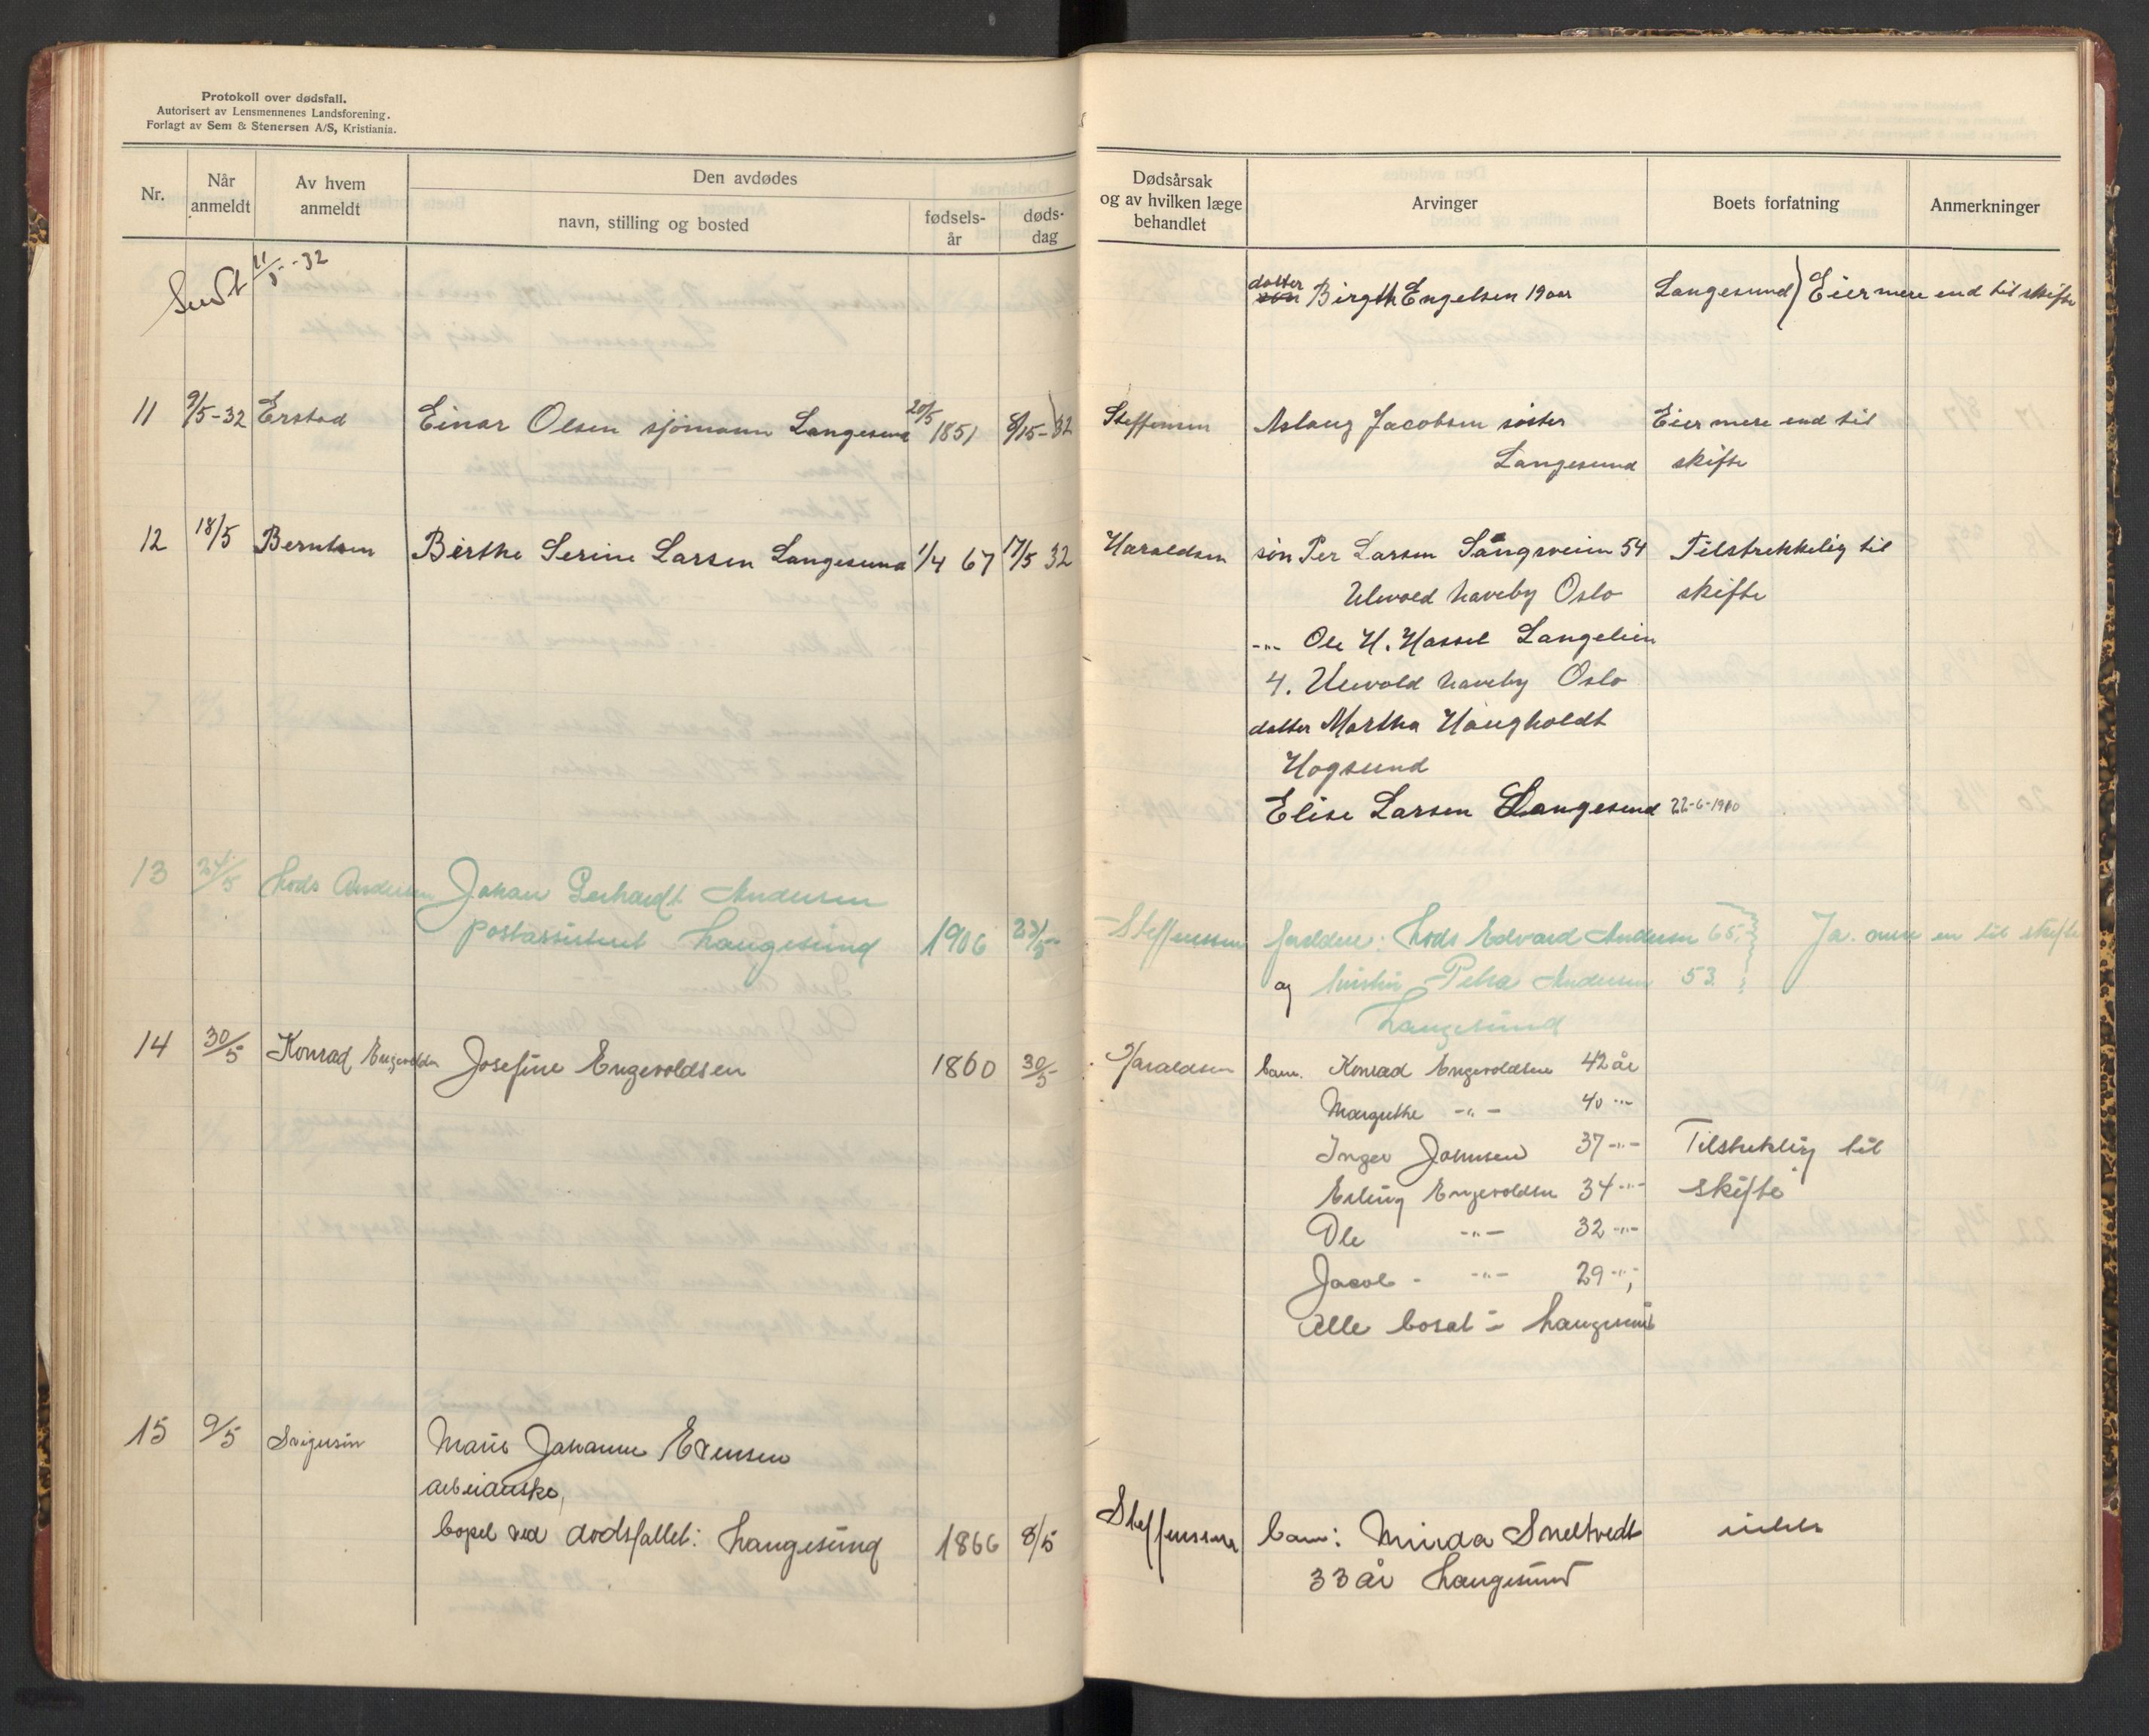 Protokoll over dødsfall.
Autorisert av Lensmennenes Landsforening.
Forlagt av Sem & Stenersen A/S, Kristiania.
Nr.
Når anmeldt
Av hvem anmeldt
Den avdødes
navn, stilling og bosted
fødsels-år
døds-dag
Dødsårsak og av hvilken læge behandlet
Arvinger
Boets forfatning
Anmerkninger
Sendt 21/5-32
datter Birgth Engelsen 19 aar Langesund) Eier mere end til skifte
11 9/5-32 Erstad Einar Olsen sjömann Langesund 20/5 1851 8/15-32 Steffensen Aslaug Jacobsen söster Eier mere end til
Langesund skifte
12 18/5 Berntsen Birthe Serine Larsen Langesund 1/4 67 17/5 32 Haraldsen sön Per Larsen Sångsveien 54 Tilstrekkelig til
Ulevold haveby Oslo skifte
-"- Ole H. Hassel Langelien
4. Ulevold haveby Oslo
datter Martha Haugholdt
Hogsund
Elise Larsen Langesund 22-6-1900
13 24/5 Lods Andersen Johan Gerhardt Andersen
postassistent Langesund 1906 23/5 Steffenssen foreldre: Lods Edvard Andersen 65, Ja. mere en til skifte
og hustru Petra Andersen 53
Langesund
14 30/5 Konrad Engevoldsen Josefine Engevoldsen 1860 30/5 Haraldsen barn. Konrad Engevoldsen 42 år
Margrethe -"- 40 -"-
Inger Johnsen 37 -"- Tilstreklig til
Erling Engevoldsen 34 -"- skifte
Ole -"- 32 -"-
Jacob -"- 29 -"-
Alle bosat i Langesund
15 9/5 Svigersön Marie Johanne Evensen
arbeiderske,
bopel ved dødsfallet: Langesund 1866 8/5 Steffenssen barn: Minda Smeltvedt intet
33 år Langesund